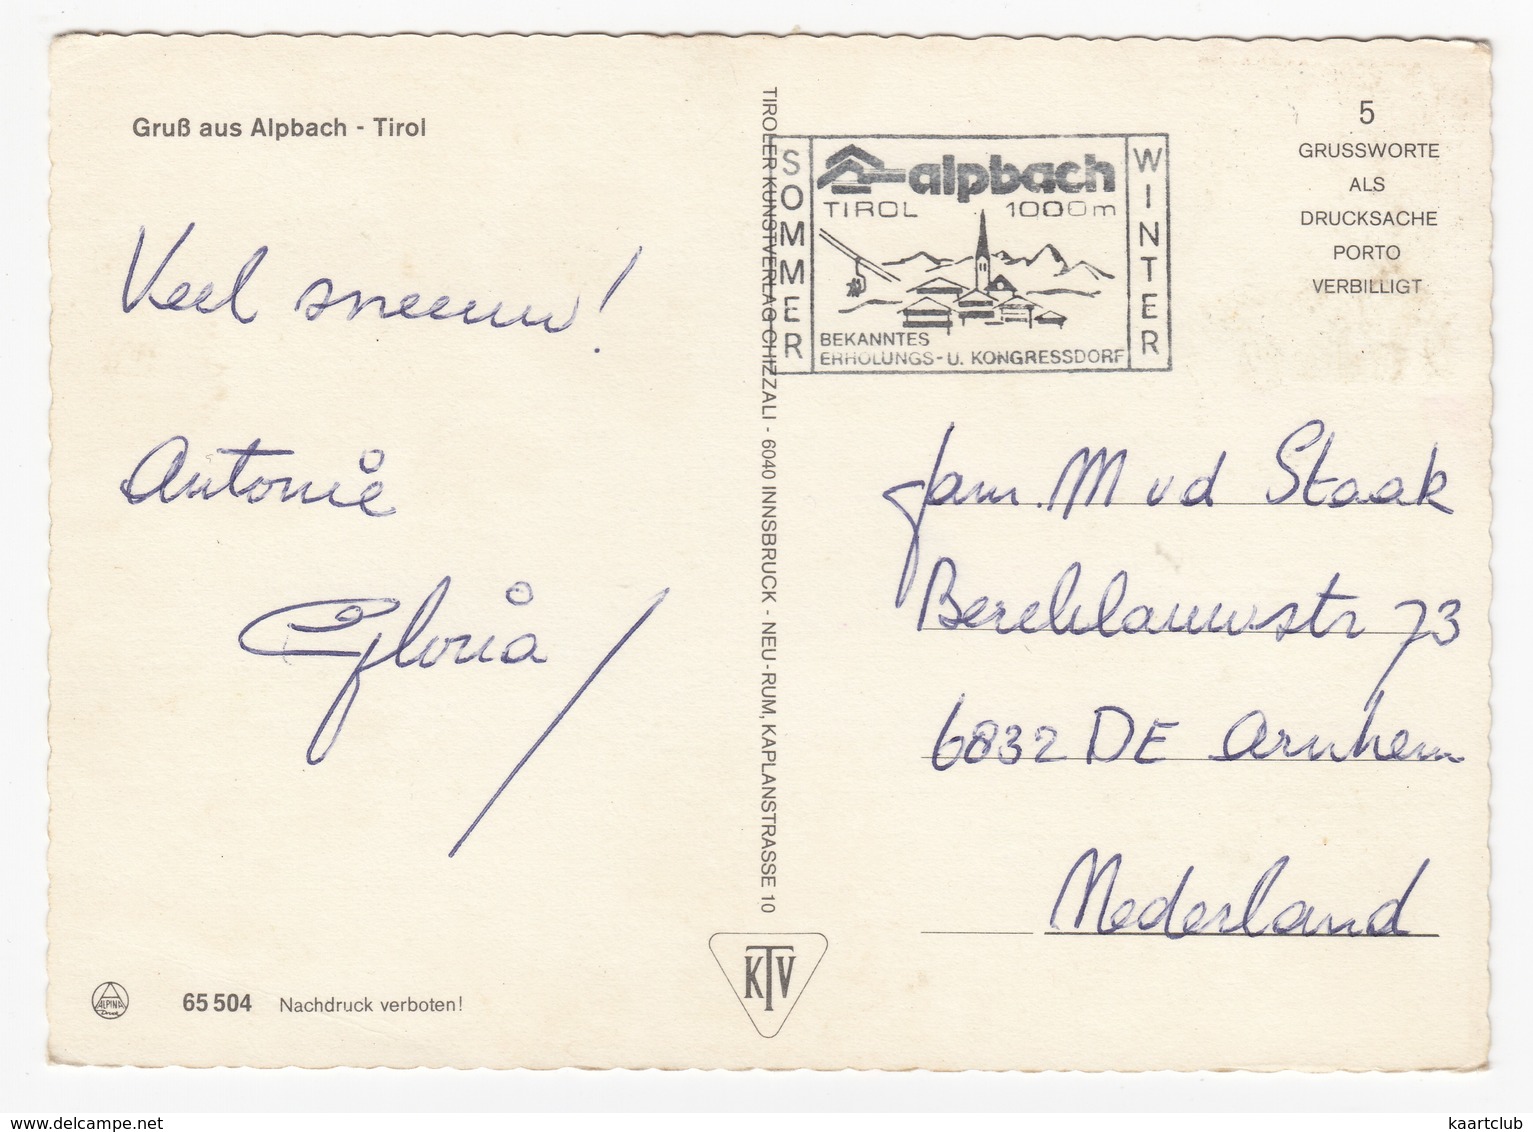 Gruß aus Alpbach - Tirol
Veel sneeuw!
Antonie
Gloria
ALPINA
Druck
65 504 Nachdruck verboten!
TIROLER KUNSTVERLAG CHIZZALI - 6040 INNSBRUCK - NEU-RUM, KAPLANSTRASSE 10
KTV
SOMMER
alpbach
TIROL 1000m
BEKANNTES
ERHOLUNGS- U. KONGRESSDORF
WINTER
5
GRUSSWORTE
ALS
DRUCKSACHE
PORTO
VERBILLIGT
fam. M vd Staak
73
6832 DE Arnhem
Nederland
www.delcampe.net
kaartclub